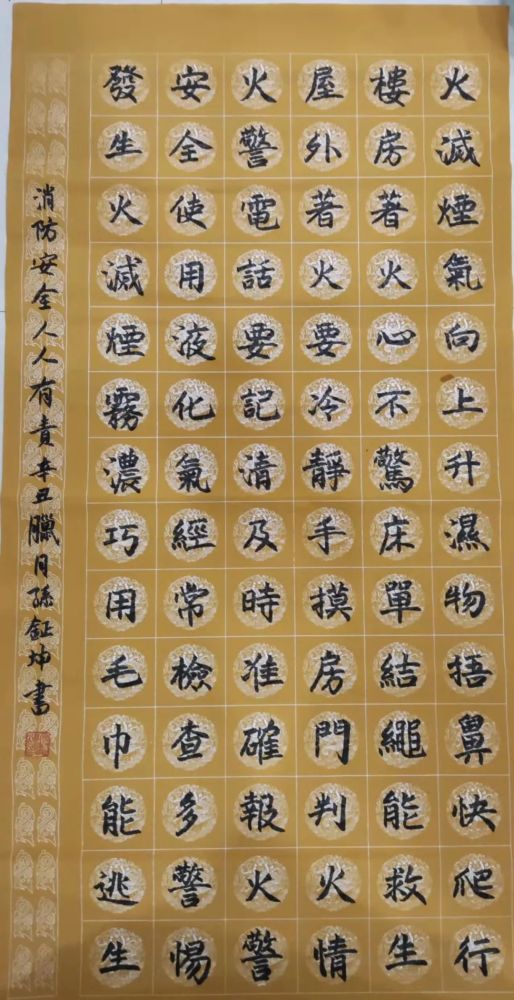 火滅煙氣向上升濕物捂鼻快爬行
樓房著火心不驚床單結繩能救生
屋外著火要冷靜手摸房門判火情
火警電話要記清及時准確報火警
安全使用液化氣經常檢查多警惕
發生火滅煙霧濃巧用毛巾能逃生
消防安全人人有責辛丑臘月孫鉦坤書